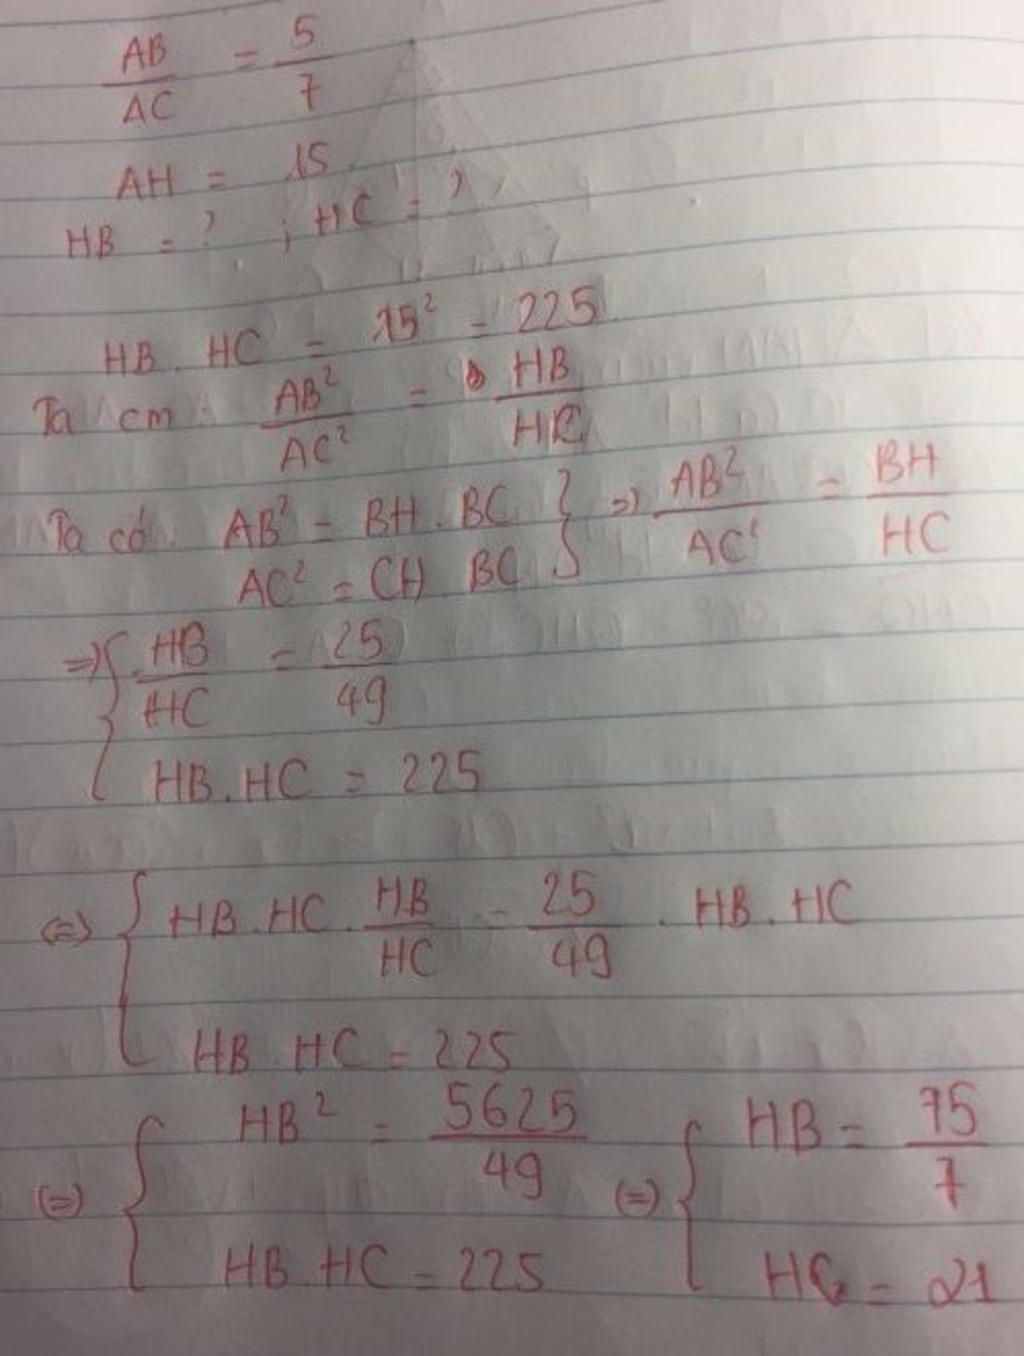 AB/AC = 5/7
AH = 15
HB = ? ; HC = ?
HB . HC = 15² = 225
Ta cm : AB²/AC² = HB/HC
Ta có : AB² = BH . BC } => AB²/AC² = BH/HC
AC² = CH BC
=> { HB/HC = 25/49
HB . HC = 225
<=> { HB . HC . HB/HC = 25/49 . HB . HC
HB HC = 225
(=) { HB² = 5625/49 (=) { HB = 75/7
HB . HC = 225 HC = 21